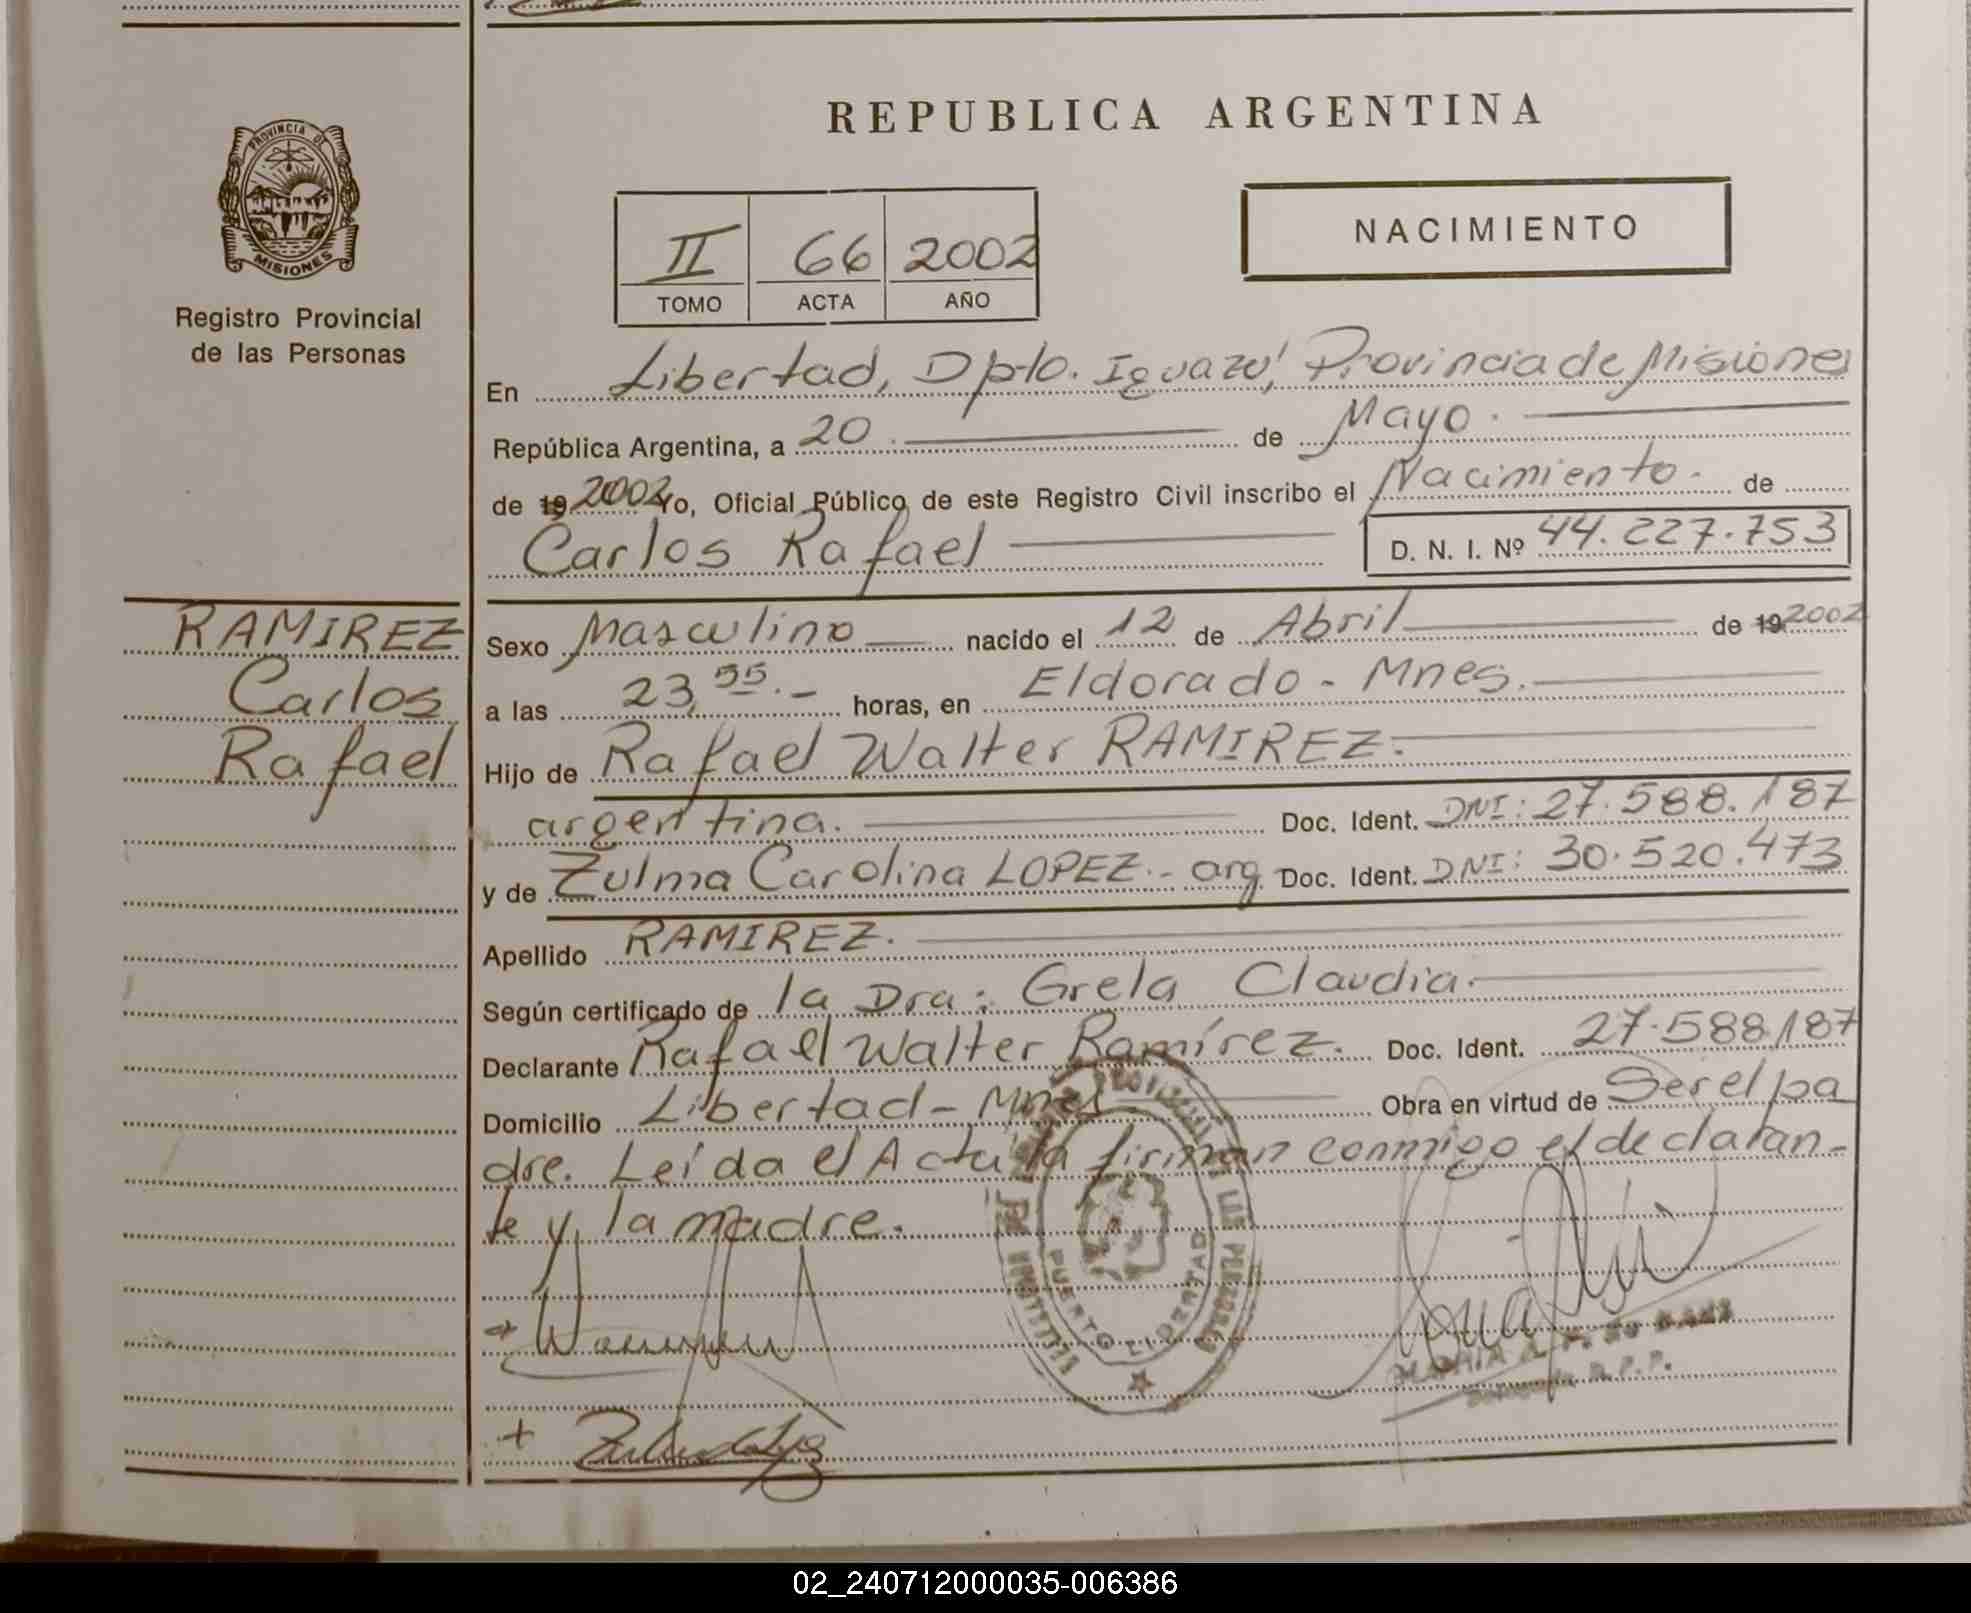 REPUBLICA ARGENTINA
PROVINCIA DE
MISIONES
Registro Provincial
de las Personas
II 66 2002
TOMO ACTA AÑO
NACIMIENTO
En Libertad, Dpto. Iguazú, Provincia de Misiones
República Argentina, a 20. de Mayo.
de 19 2002 Yo, Oficial Público de este Registro Civil inscribo el Nacimiento. de
Carlos Rafael D. N. I. Nº 44.227.753
RAMIREZ
Carlos
Rafael
Sexo Masculino nacido el 12 de Abril de 19 2002
a las 23,55.- horas, en Eldorado - Mnes.
Hijo de Rafael Walter RAMIREZ.
argentina. Doc. Ident. DNI: 27.588.187
y de Zulma Carolina LOPEZ.- arg. Doc. Ident. DNI: 30.520.473
Apellido RAMIREZ.
Según certificado de la Dra: Grela Claudia.
Declarante Rafael Walter Ramírez. Doc. Ident. 27.588.187
Domicilio Libertad - Mnes Obra en virtud de Ser el pa
dre. Leída el Acta la firman conmigo el declaran-
te y la madre.
PUERTO LIBERTAD
02_240712000035-006386